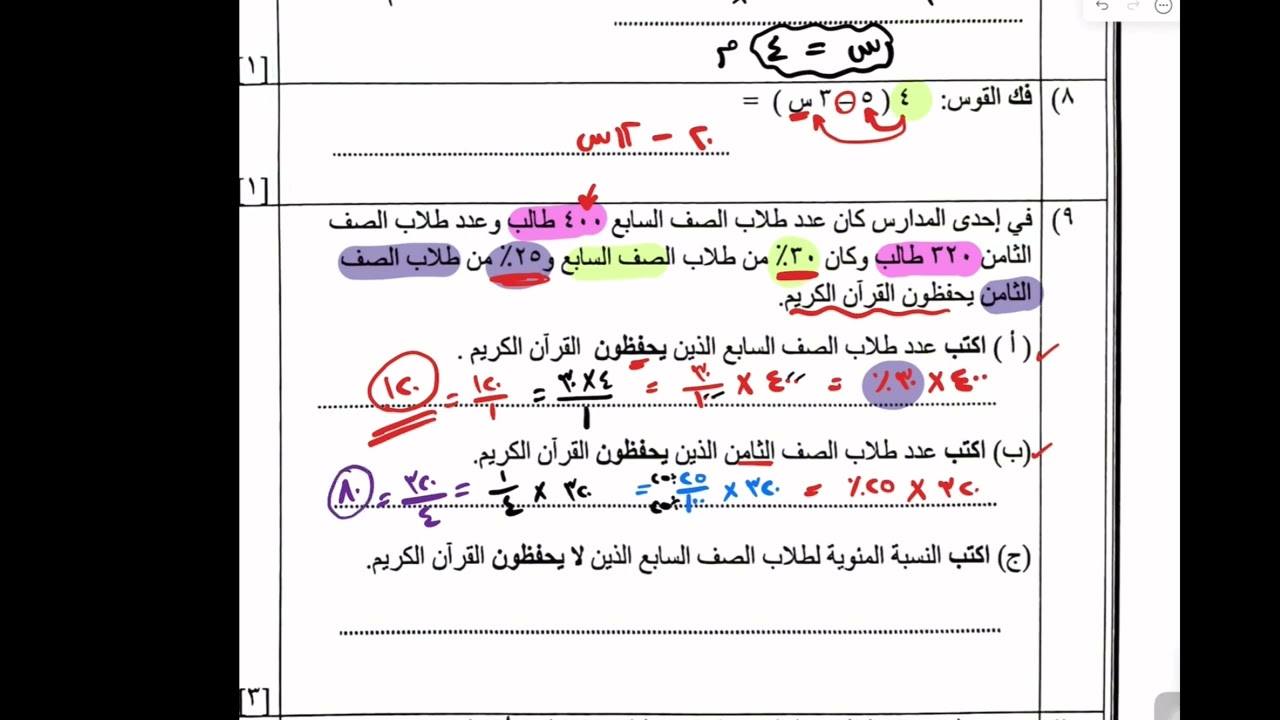 س = ٤ م
[١]
٨) فك القوس: ٤ ( ٥ – ٣ س ) =
٢٠ – ١٢س
[١]
٩) في إحدى المدارس كان عدد طلاب الصف السابع ٤٠٠ طالب وعدد طلاب الصف
الثامن ٣٢٠ طالب وكان ٣٠٪ من طلاب الصف السابع و٢٥٪ من طلاب الصف
الثامن يحفظون القرآن الكريم.
(أ) اكتب عدد طلاب الصف السابع الذين يحفظون القرآن الكريم .
٤٠٠ × ٣٠٪ = ٤٠٠ × ٣٠/١٠٠ = ٤×٣٠/١ = ١٢٠/١ = ١٢٠
(ب) اكتب عدد طلاب الصف الثامن الذين يحفظون القرآن الكريم.
٣٢٠ × ٢٥٪ = ٣٢٠ × ٢٥/١٠٠ ÷٢٥ ÷٢٥ = ٣٢٠ × ١/٤ = ٣٢٠/٤ = ٨٠
(ج) اكتب النسبة المئوية لطلاب الصف السابع الذين لا يحفظون القرآن الكريم.
[٣]